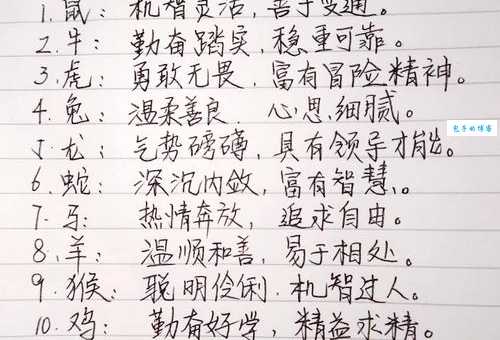 1.鼠：机智灵活，善于变通。
2.牛：勤奋踏实，稳重可靠。
3.虎：勇敢无畏，富有冒险精神。
4.兔：温柔善良，心思细腻。
5.龙：气势磅礴，具有领导才能。
6.蛇：深沉内敛，富有智慧、。
7.马：热情奔放，追求自由。
8.羊：温顺和善，易于相处。
9.猴：聪明伶俐.机智过人。
10.鸡：勤奋好学，精益求精。